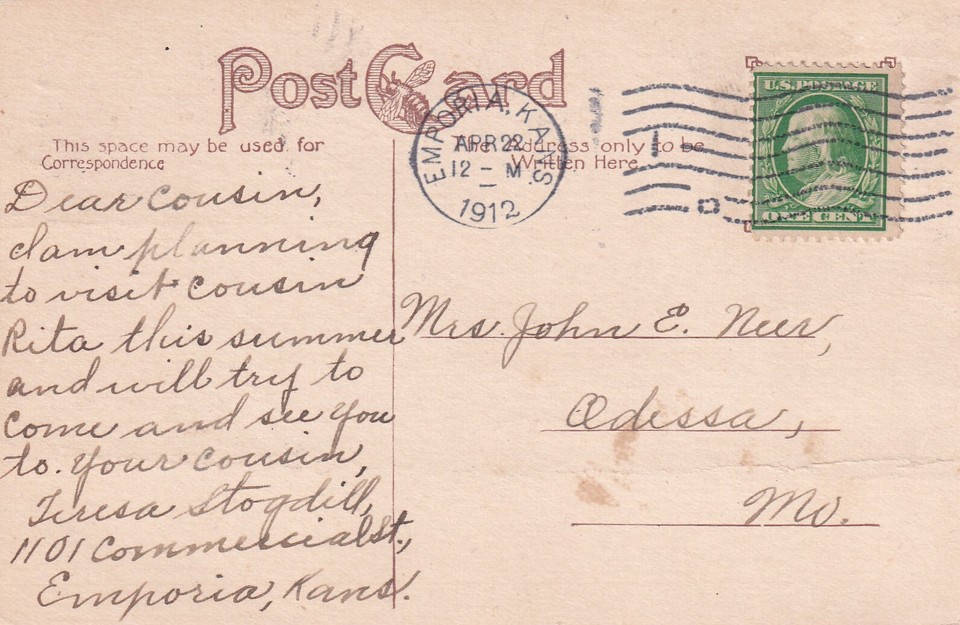 Post Card
This space may be used for
Correspondence
The address only to be
Written Here
EMPORIA, KANS.
APR 22
12 - M
1912
U.S. POSTAGE
ONE CENT
Dear Cousin,
I am planning
to visit Cousin
Rita this summer
and will try to
come and see you
to. Your Cousin,
Teresa Stogdill,
1101 Commercial St.,
Emporia, Kans.
Mrs. John E. Neer,
Odessa,
Mo.